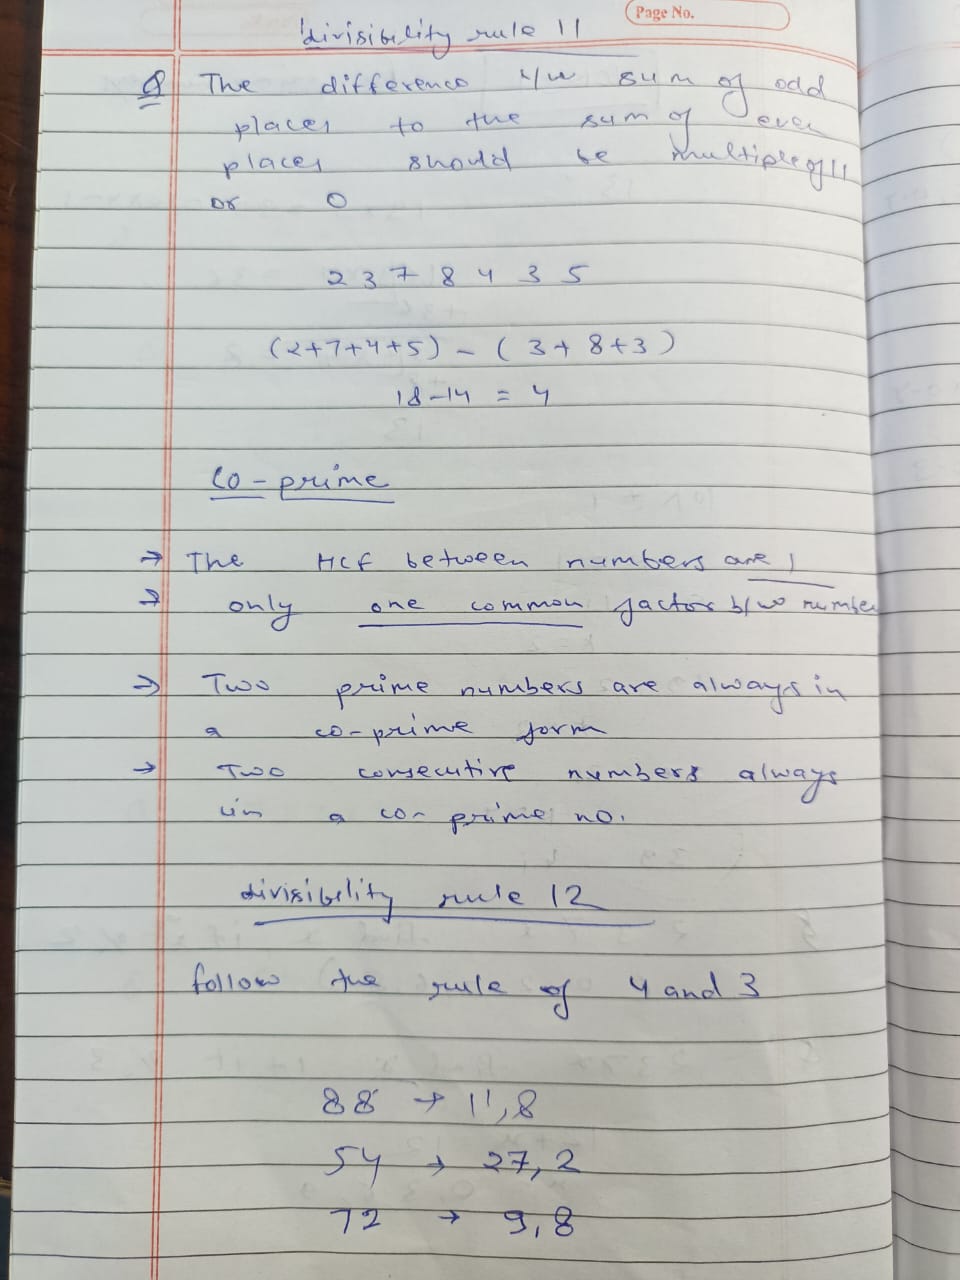 Page No.
divisibility rule 11
Q The difference b/w sum of odd
places to the sum of even
places should be multiple of 11
or 0
2 3 7 8 4 3 5
(2+7+4+5) - (3+8+3)
18-14 = 4
Co-prime
→ The HCF between numbers are 1
→ only one common factors b/w number
→ Two prime numbers are always in
a co-prime form
→ Two consecutive numbers always
in a co-prime no.
divisibility rule 12
follow the rule of 4 and 3
88 → 11,8
54 → 27,2
72 → 9,8